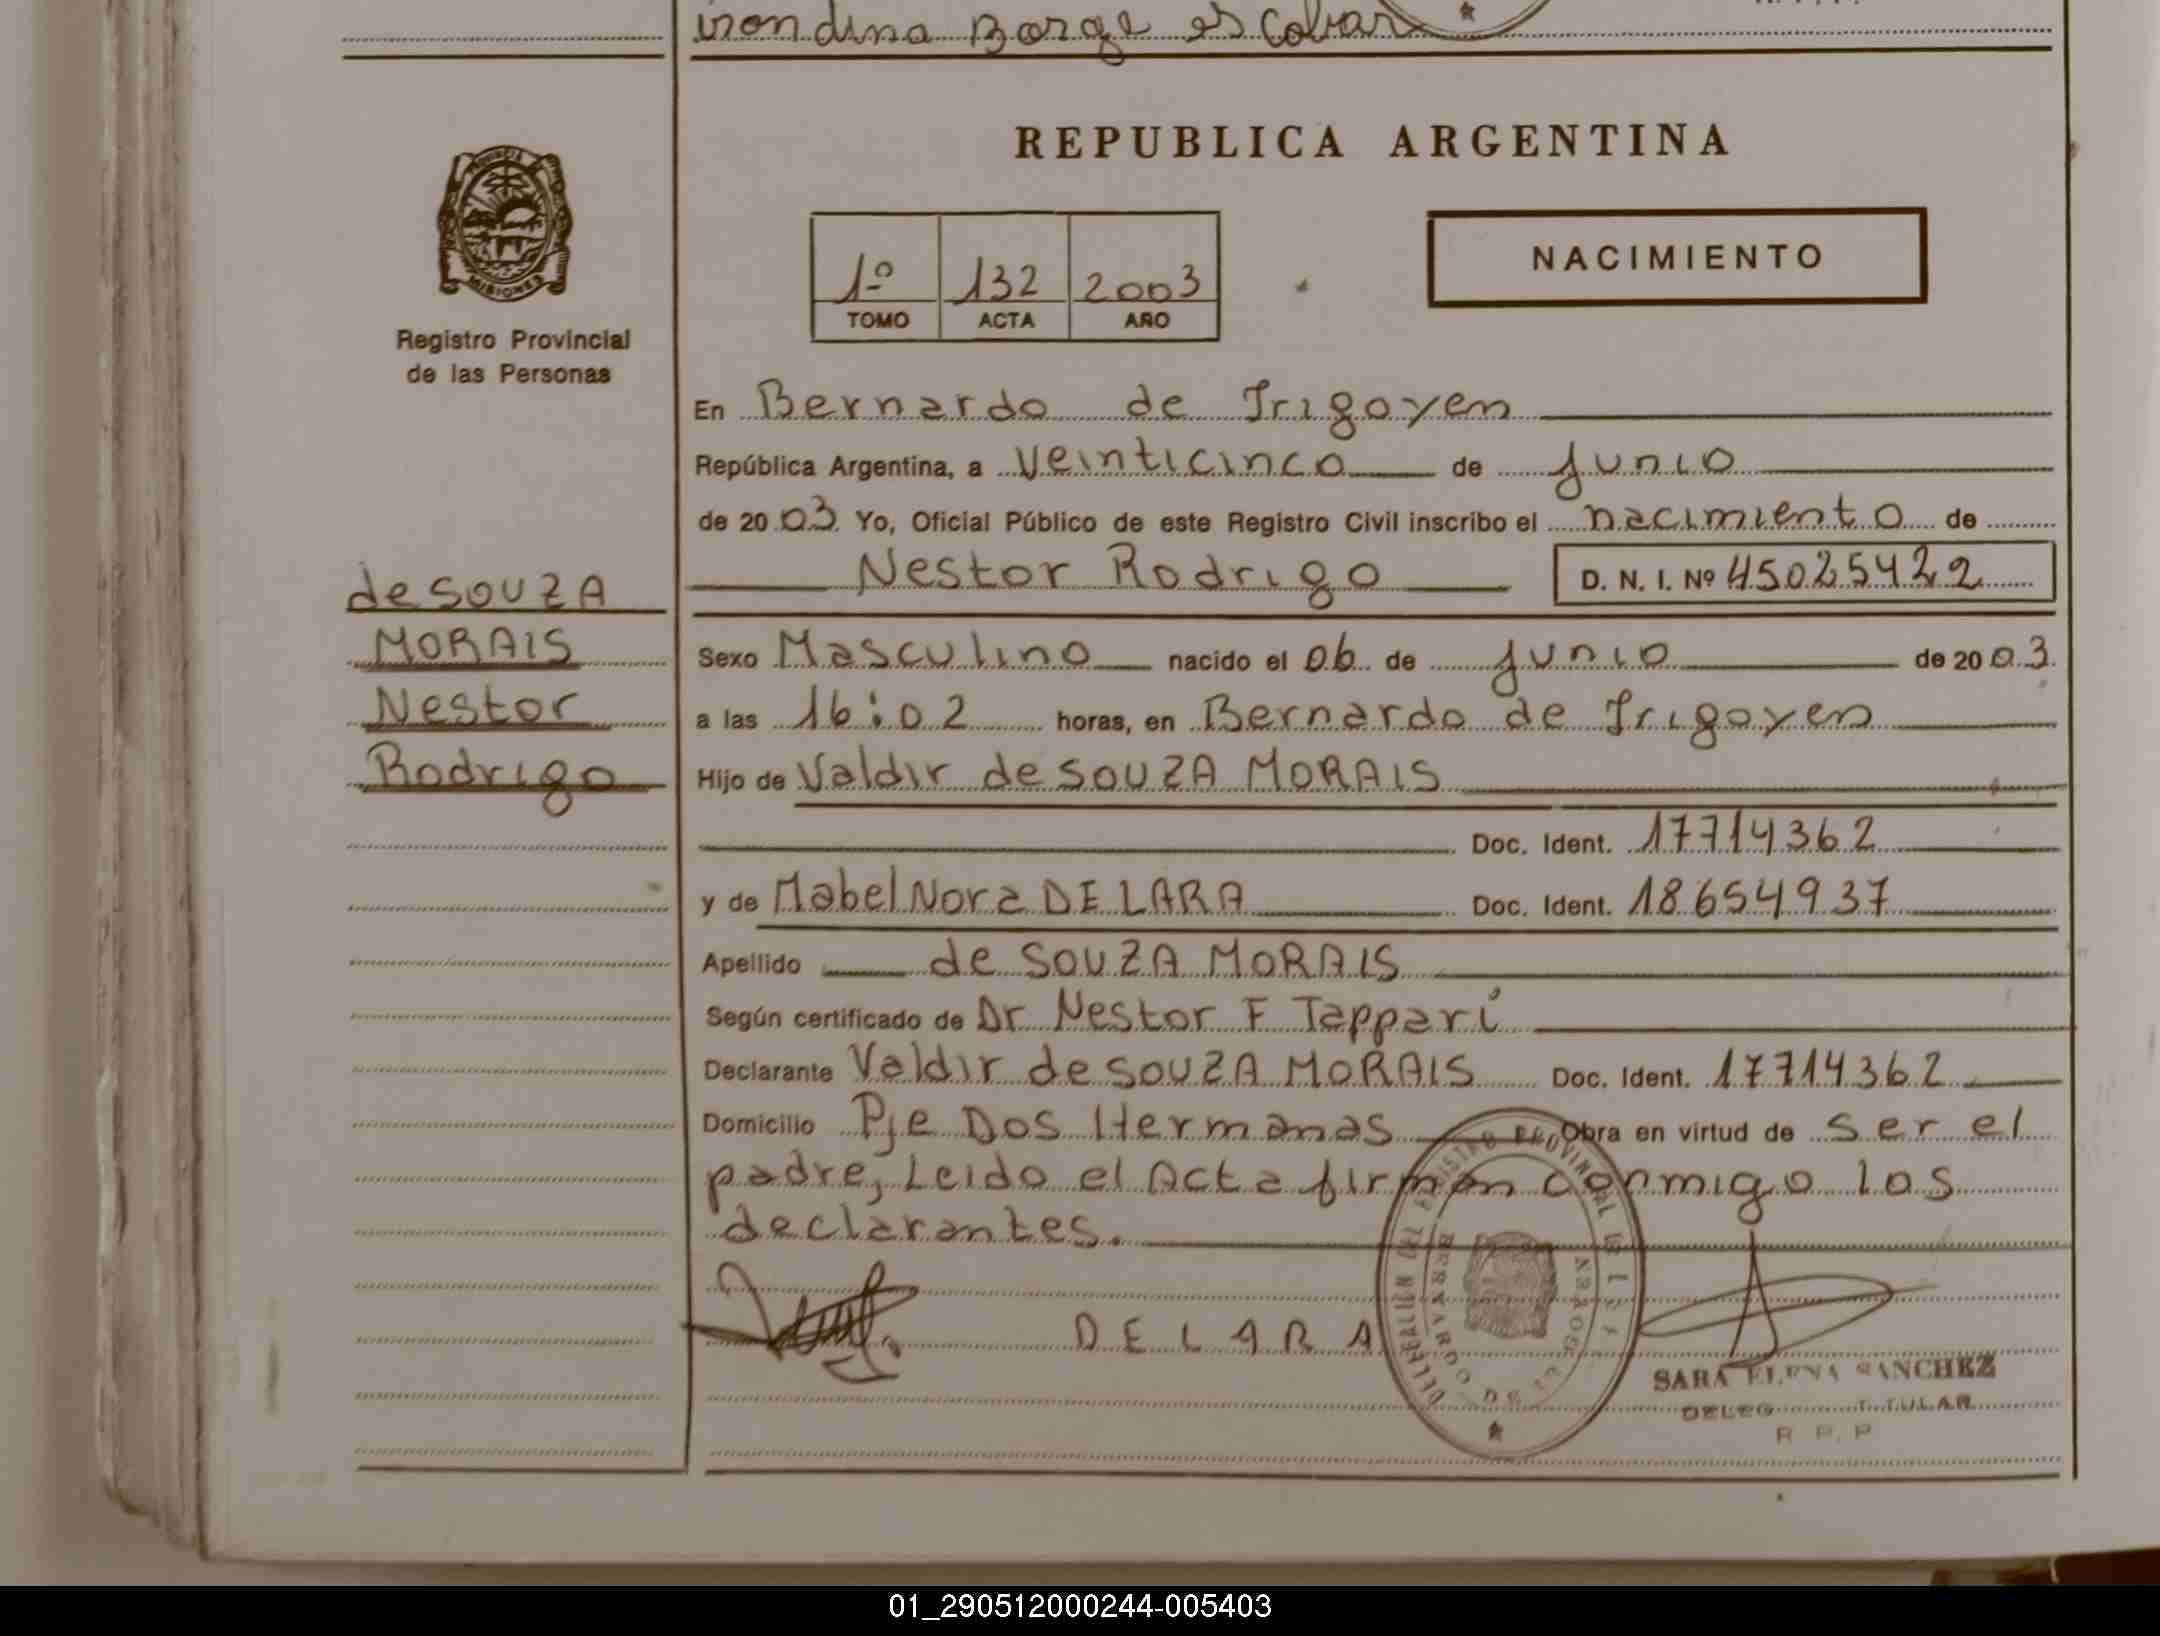 irondina Borge escobar
REPUBLICA ARGENTINA
PROVINCIA
MISIONES
Registro Provincial
de las Personas
NACIMIENTO
1º 132 2003
TOMO ACTA AÑO
En Bernardo de Irigoyen
República Argentina, a veinticinco de junio
de 2003 Yo, Oficial Público de este Registro Civil inscribo el nacimiento de
Nestor Rodrigo D. N. I. Nº 45025422
de SOUZA
MORAIS
Nestor
Rodrigo
Sexo Masculino nacido el 06 de junio de 2003
a las 16:02 horas, en Bernardo de Irigoyen
Hijo de Valdir de SOUZA MORAIS
Doc. Ident. 17714362
y de Mabel Nora DE LARA Doc. Ident. 18654937
Apellido de SOUZA MORAIS
Según certificado de Dr Nestor F Tapparí
Declarante Valdir de SOUZA MORAIS Doc. Ident. 17714362
Domicilio Pje Dos Hermanas Obra en virtud de ser el
padre, Leido el Acta firman conmigo los
declarantes.
DE LARA
SARA ELENA SANCHEZ
DELEG TITULAR
R P. P
01_290512000244-005403